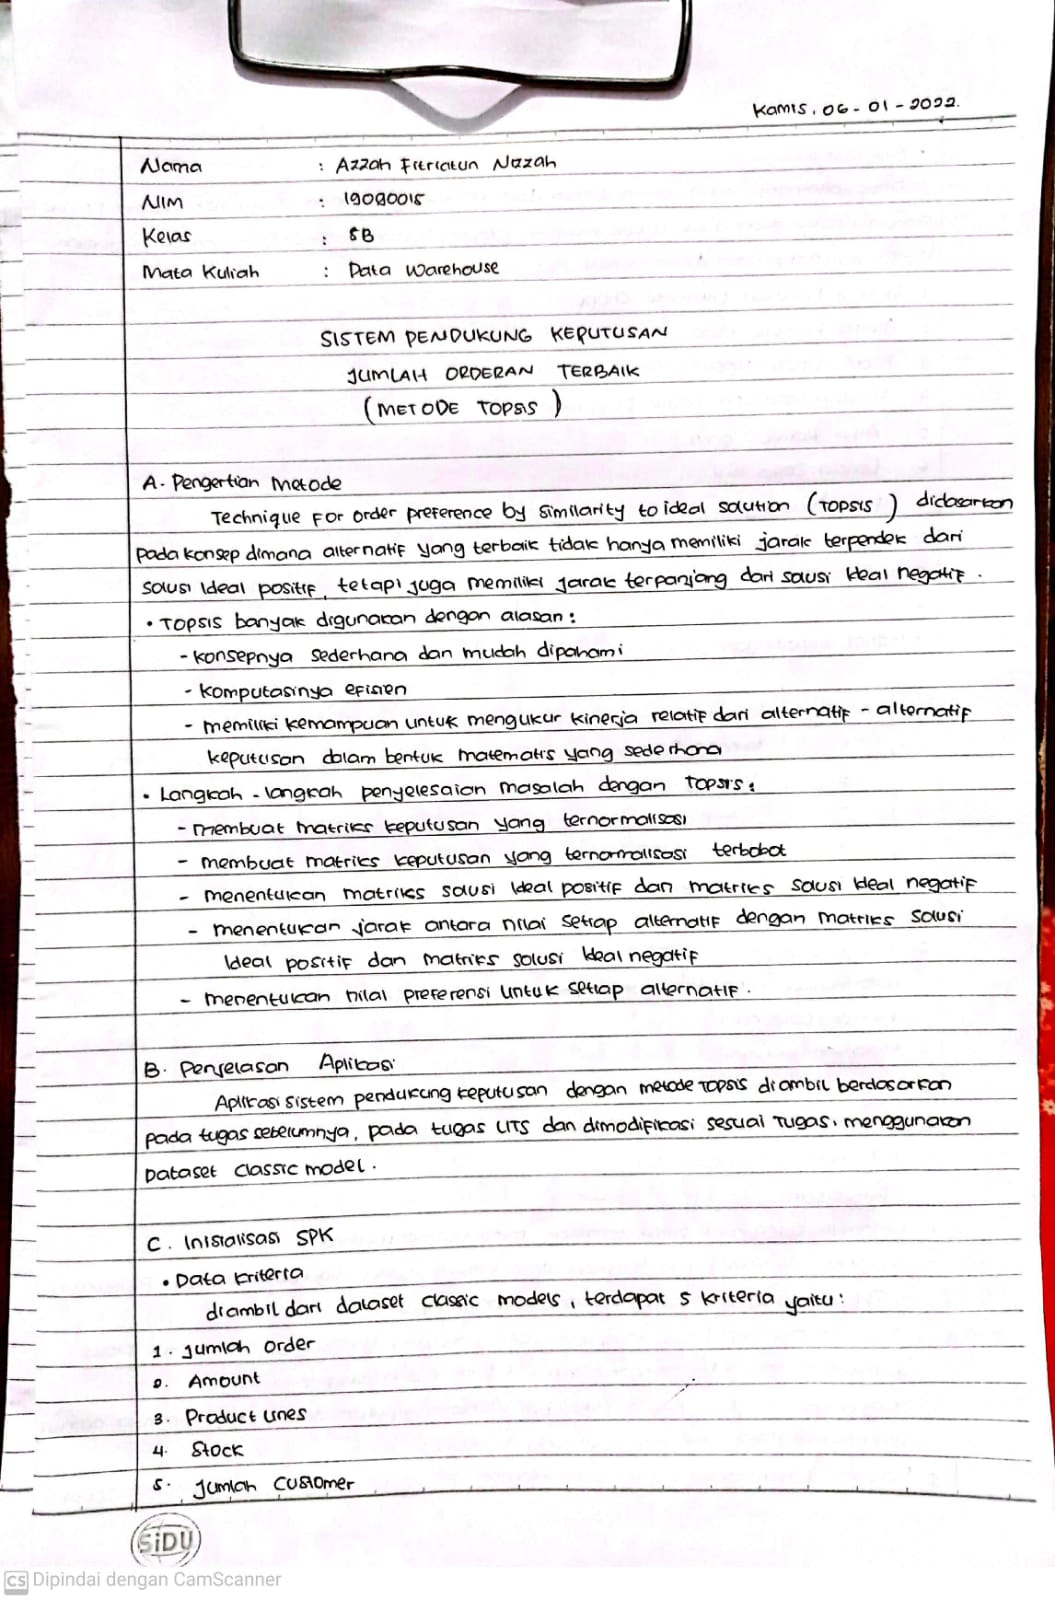 Kamis, 06-01-2022.
Nama : Azzah Fitriatun Nazzah
NIM : 19090015
Kelas : 5B
Mata Kuliah : Data Warehouse
SISTEM PENDUKUNG KEPUTUSAN
JUMLAH ORDERAN TERBAIK
(METODE TOPSIS)
A. Pengertian Metode
Technique For order preference by Similarity to ideal solution (TOPSIS) didasarkan
pada konsep dimana alternatif yang terbaik tidak hanya memiliki jarak terpendek dari
solusi ideal positif, tetapi juga memiliki jarak terpanjang dari solusi ideal negatif.
• TOPSIS banyak digunakan dengan alasan:
- Konsepnya sederhana dan mudah dipahami
- Komputasinya efisien
- memiliki kemampuan untuk mengukur kinerja relatif dari alternatif - alternatif
keputusan dalam bentuk matematis yang sederhana
• Langkah - langkah penyelesaian masalah dengan TOPSIS:
- membuat matriks keputusan yang ternormalisasi
- membuat matriks keputusan yang ternormalisasi terbobot
- menentukan matriks solusi ideal positif dan matriks solusi ideal negatif
- menentukan jarak antara nilai setiap alternatif dengan matriks solusi
ideal positif dan matriks solusi ideal negatif
- menentukan nilai preferensi untuk setiap alternatif.
B. Penjelasan Aplikasi
Aplikasi sistem pendukung keputusan dengan metode TOPSIS diambil berdasarkan
pada tugas sebelumnya, pada tugas UTS dan dimodifikasi sesuai Tugas, menggunakan
Dataset Classic model.
C. Inisialisasi SPK
• Data Kriteria
diambil dari dataset classic models, terdapat 5 kriteria yaitu:
1. Jumlah Order
2. Amount
3. Product Lines
4. Stock
5. Jumlah Customer
SiDU
CS Dipindai dengan CamScanner